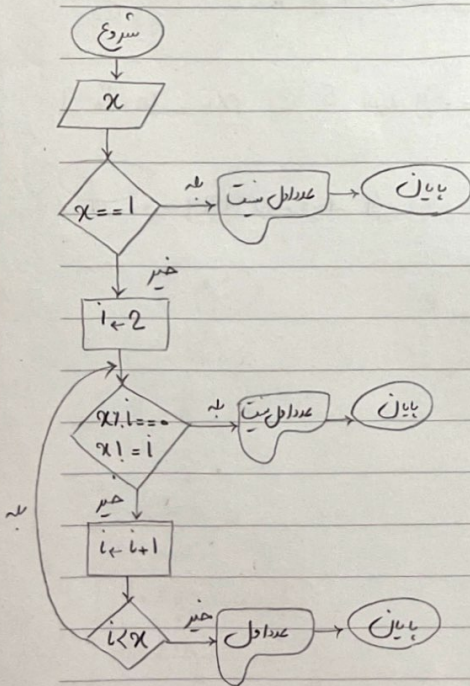 شروع
x
x==1
بله
عدد اول نیست
پایان
خیر
i←2
x%i==0
x!=i
بله
عدد اول نیست
پایان
خیر
i←i+1
بله
i<x
خیر
عدد اول
پایان